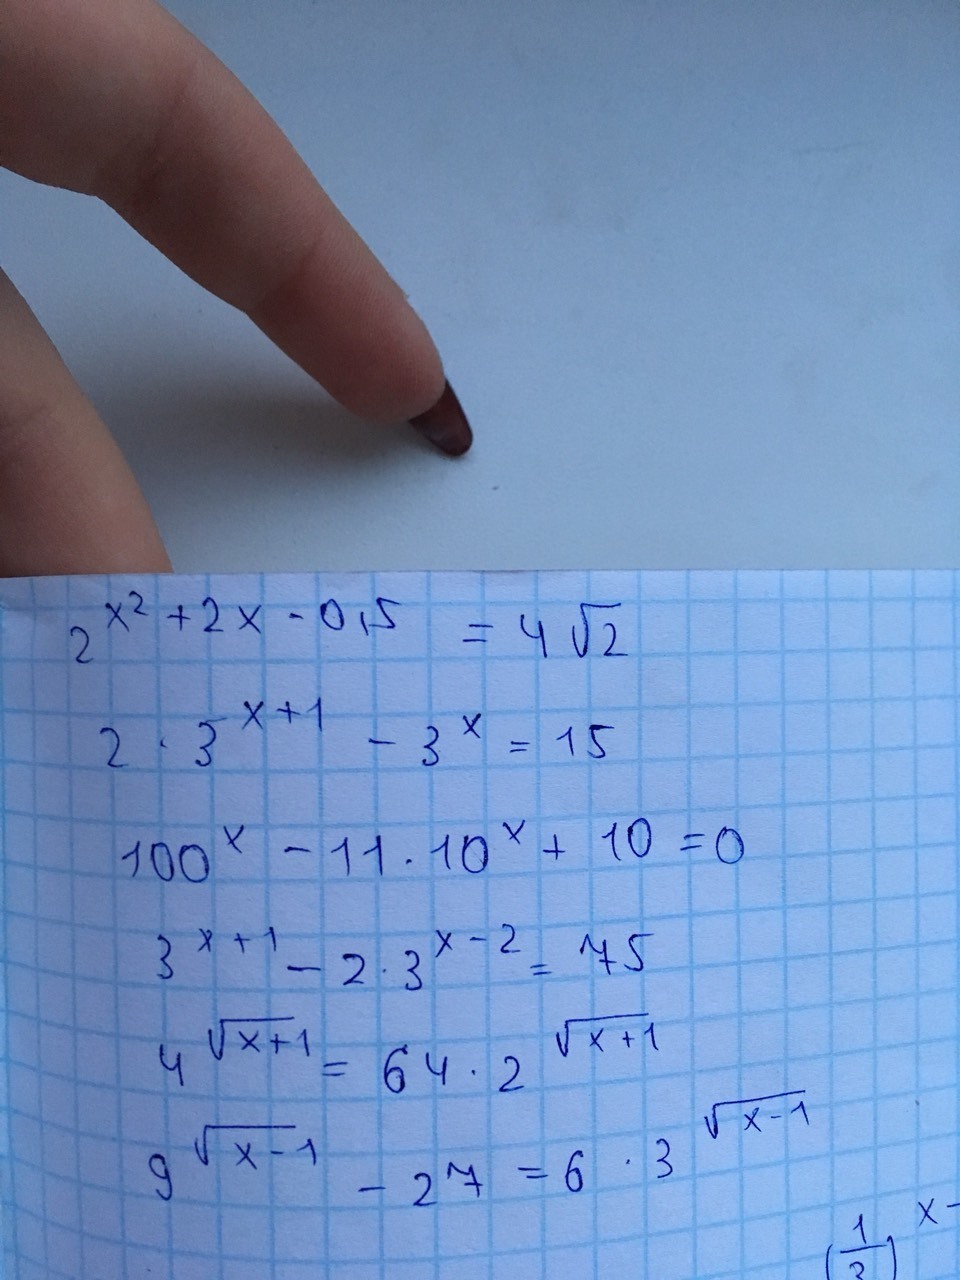 2^{x² + 2x - 0,5} = 4√2
2 · 3^{x+1} - 3^x = 15
100^x - 11 · 10^x + 10 = 0
3^{x+1} - 2 · 3^{x-2} = 75
4^{√(x+1)} = 64 · 2^{√(x+1)}
9^{√(x-1)} - 27 = 6 · 3^{√(x-1)}